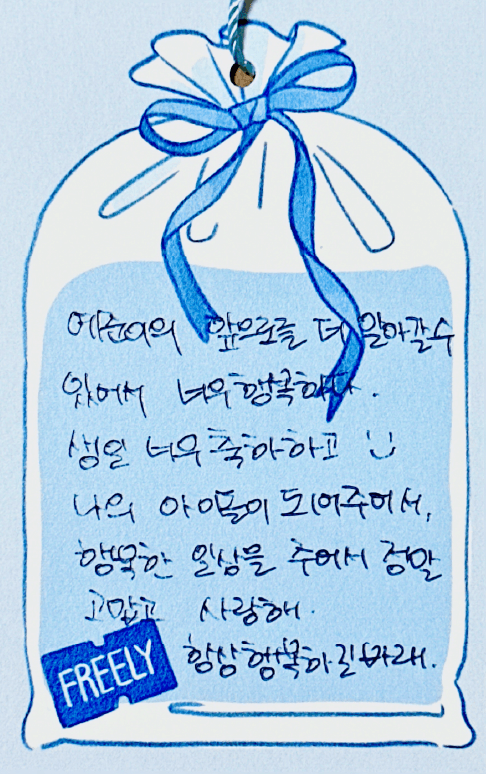 예준이의 앞으로를 더 알아갈수
있어서 너무 행복하다.
생일 너무 축하하고
나의 아이돌이 되어주어서,
행복한 일상을 주어서 정말
고맙고 사랑해.
항상 행복하길 바래.
FREELY